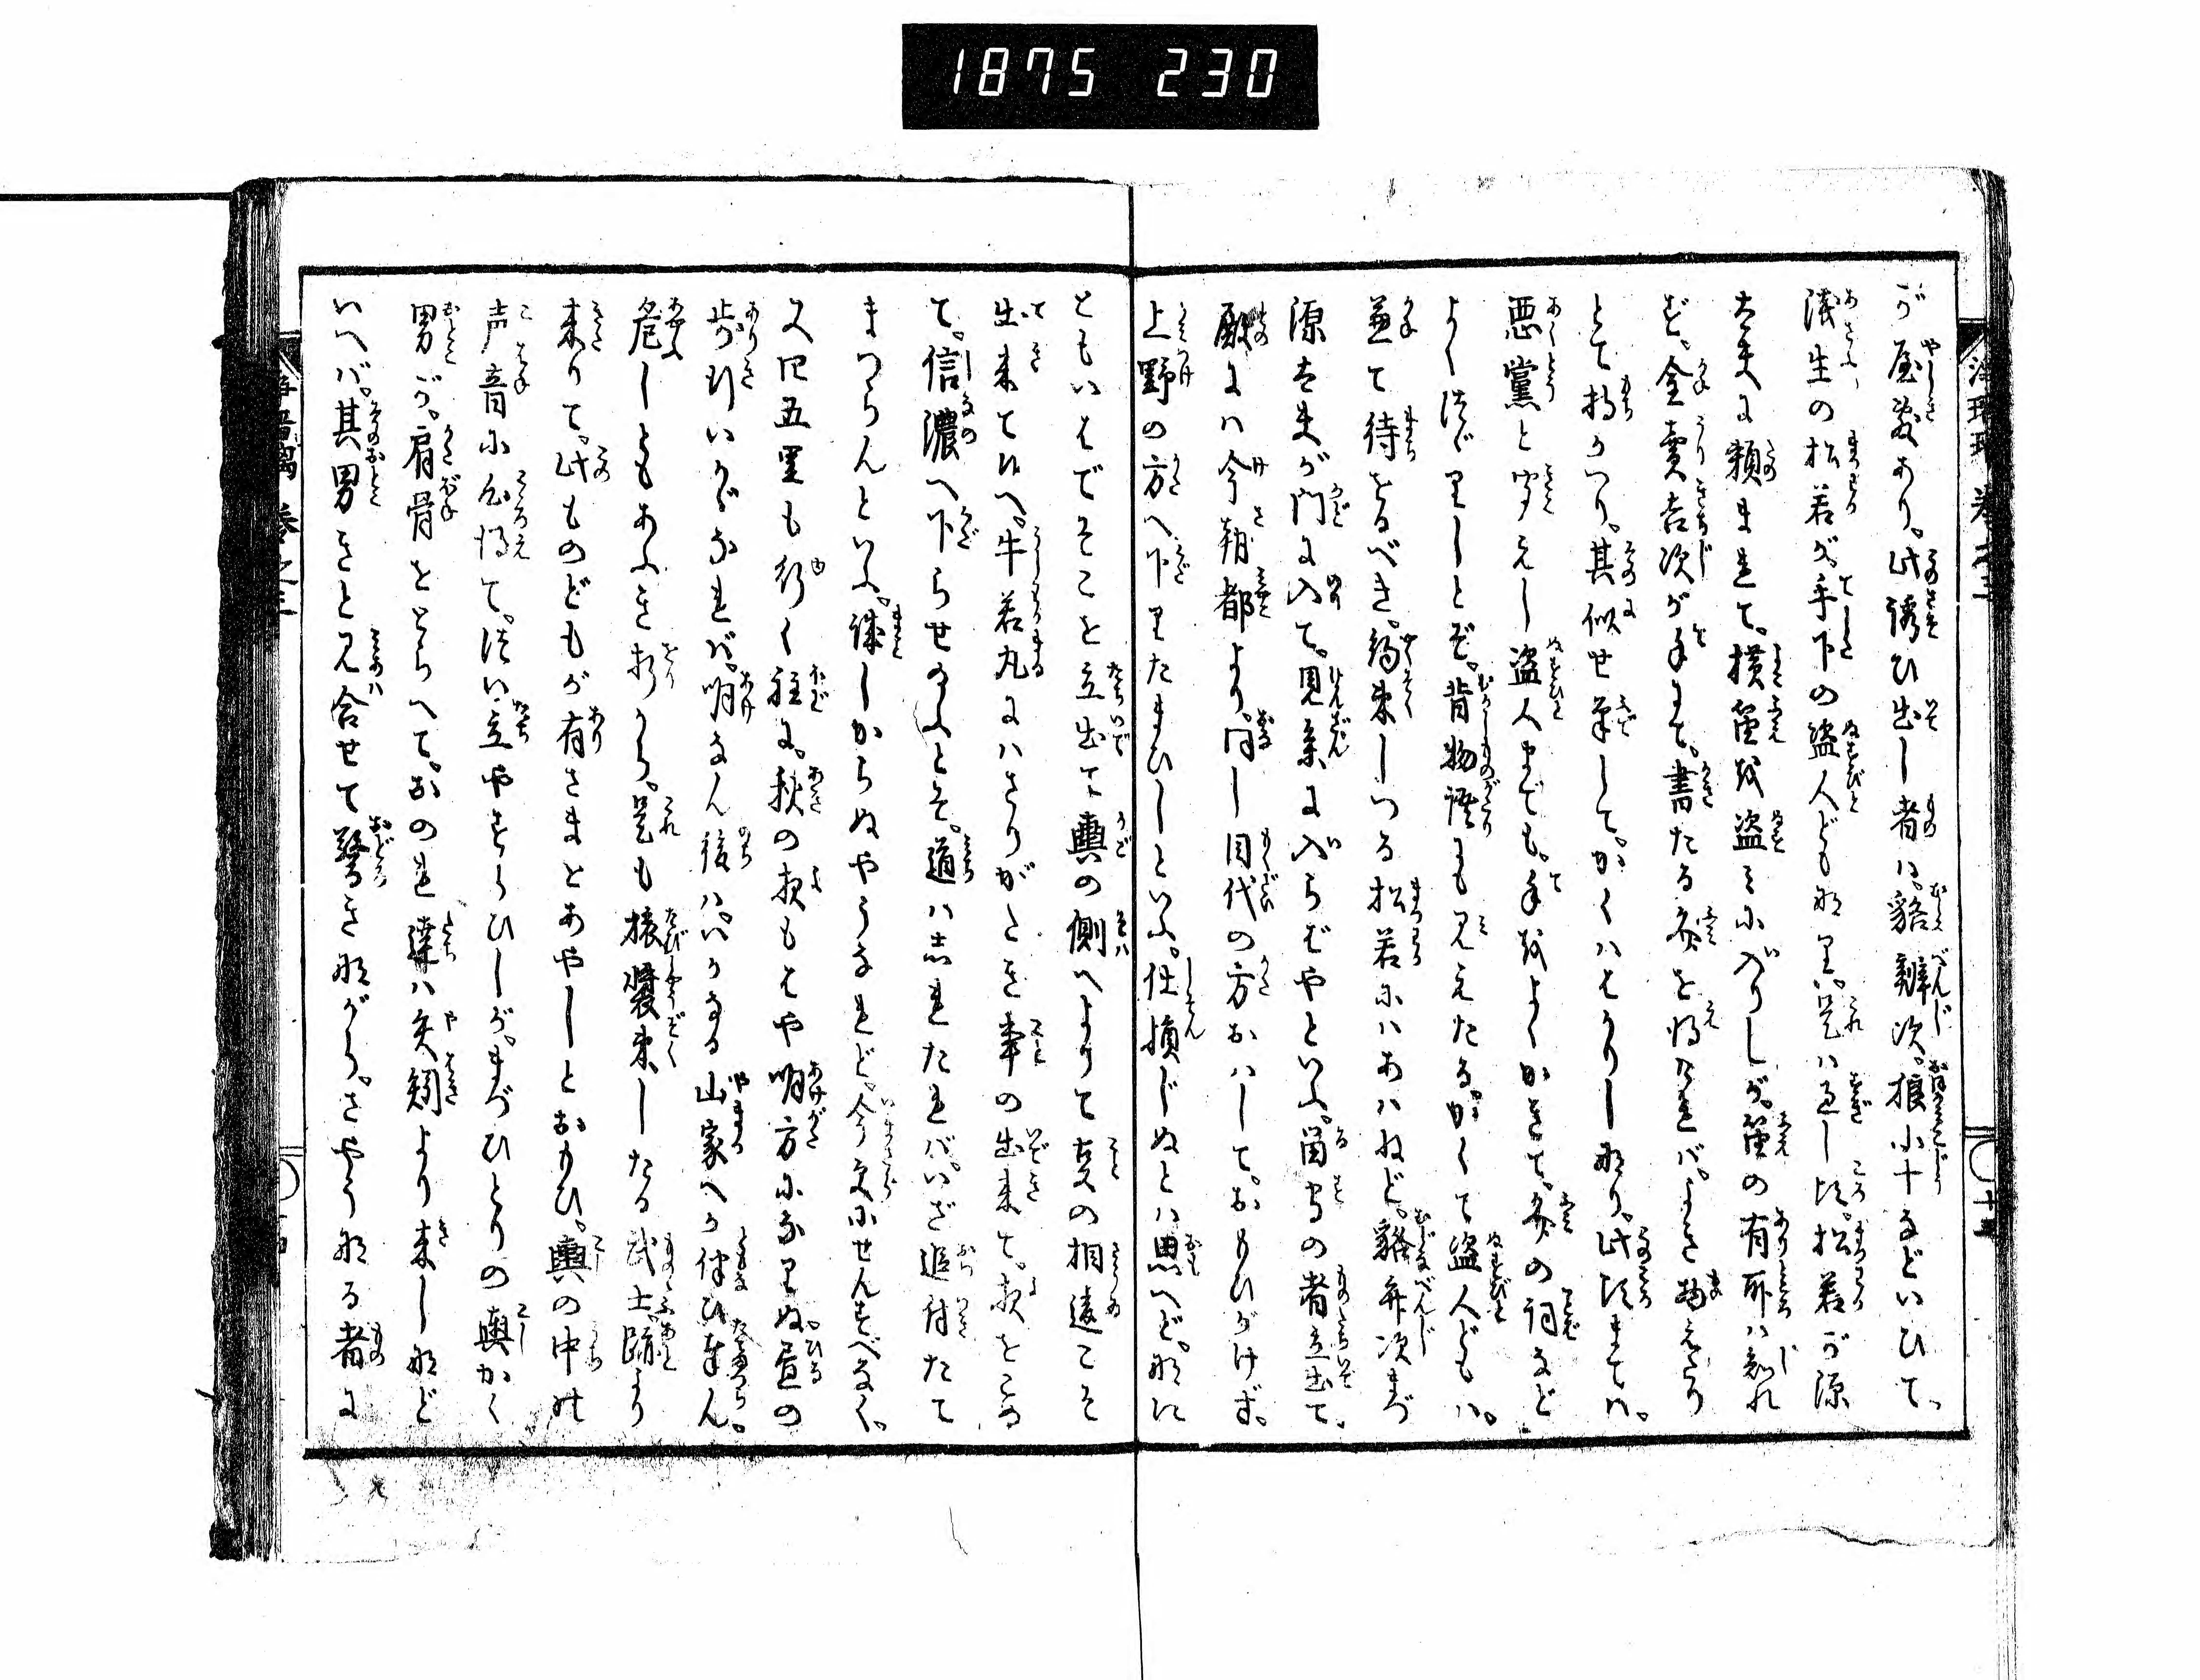 1875 230
が屋敷あり。此誘ひ出し者は。貉辨次。狼小十などいひて。
浅生の松若が。手下の盗人ども也。是は過し頃。松若が源
太夫に頼まれて。横笛を盗みに入りしが。笛の有所は知れ
ず。金賣吉次が手にて。書たる文を得たれば。よき物えたり
とて持かへり。其似せ筆して。かくはせりし也。此頃までは。
悪黨と聞えし盗人までも。手をよくかきて。文の詞など
よく続りしとぞ。昔物語にも見えたる。かくて盗人どもは。
兼て待をるべき。約束しつる松若にはあはねど。貉弁次まづ
源太夫が門に入て。見参に入らばやといふ。留守の者立出て。
殿には今朝都より。同し目代の方おはして。おもひがけず。
上野の方へ下りたまひしといふ。仕損じぬとは思へど。かに
ともいはでそこを立出て輿の側へよりて。爰の相違こそ
出来て候へ。牛若丸にはさりがたき事の出来て。夜をこめ
て。信濃へ下らせ給ふとぞ。道は志れたれば。いざ追付たて
まつらんといふ。誠しからぬやうなれど。今更にせんすべなく。
又四五里も行く程に。秋の夜もはや明方になりぬ。昼の
歩行いかゞなれば。明なん後は。いかなる山家へか伴ひ奉らん。
危しともあふき折から。是も旅装束したる武士。跡より
来りて。此ものどもが有さまとあやしとおもひ。輿の中の
声音に心得て。続い立やすらひしが。まづひとりの輿かく
男が。肩骨をとらへて。おのれ達は矢矧より来しかど
いへば。其男きと見合せて驚きながら。さやうなる者に